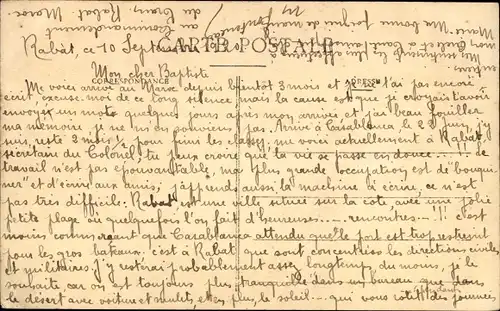 Rabat, ce 10 Septembre 1920
CARTE POSTALE
Mon cher Baptiste
CORRESPONDANCE
ADRESSE
Me voici arrivé au Maroc depuis bientôt 3 mois et je ne t'ai pas encore
écrit, excuse-moi de ce long silence, mais la cause est que je croyais t'avoir
envoyé un mot quelques jours après mon arrivée et j'ai beau fouiller
ma mémoire, je ne m'en souviens pas. Arrivé à Casablanca, le 22 juin, j'y
suis resté 2 mois ½ pour finir les classes, me voici actuellement à Rabat,
secrétaire du Colonel, tu peux croire que la vie se passe en douce... le
travail n'est pas épouvantable, ma plus grande occupation est de "bouqui-
ner" et d'écrire aux amis; j'apprends aussi la machine à écrire, ce n'est
pas très difficile. Rabat est une ville située sur la côte avec une jolie
petite plage où quelquefois l'on fait d'heureuses.... rencontres...!!! c'est
moins commerçant que Casablanca attendu que le port est trop restreint
pour les gros bateaux, c'est à Rabat que sont concentrées les directions civiles
et militaires. J'y resterai probablement assez longtemps du moins, je le
souhaite car on est toujours plus tranquille dans un bureau que dans
le désert avec voiture et mulets, et en plus, le soleil... qui vous rôtit des journées